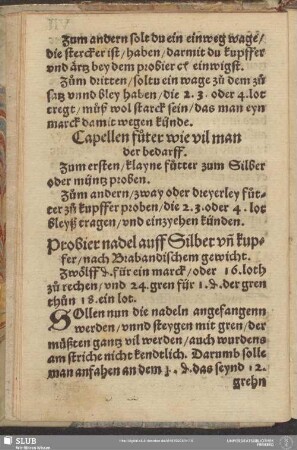 Zum andern solt du ein einweg wage/
die stercker ist/haben/darmit du kupffer
vnd ärtz bey dem probier einwigst.
Zům dritten/soltu ein wage zů dem zů
satz vnnd bley haben/die 2. 3. oder 4. lot
tregt/můß wol starck sein/das man eyn
marck damit wegen künde.
Capellen fůter wie vil man
der bedarff.
Zum ersten/klayne fůtter zum Silber
oder můntz proben.
Zům andern/zway oder dreyerley fůt-
ter zů kupffer proben/die 2. 3. oder 4. lot
bleyß tragen/vnd einzyehen künden.
Probier nadel auff Silber vñ kup-
fer/nach Brabandischem gewicht.
Zwölff d. für ein marck/oder 16. loth
zů rechen/vnd 24. gren für 1. d. der gren
thůn 18. ein lot.
SOllen nun die nadeln angefangenn
werden/vnnd steygen mit gren/der
můßten gantz vil werden/auch wurdens
am striche nicht kendtlich. Darumb solle
man anfahen an dem 1. d. das seynd 12.
grehn
SLUB
Wir führen Wissen.